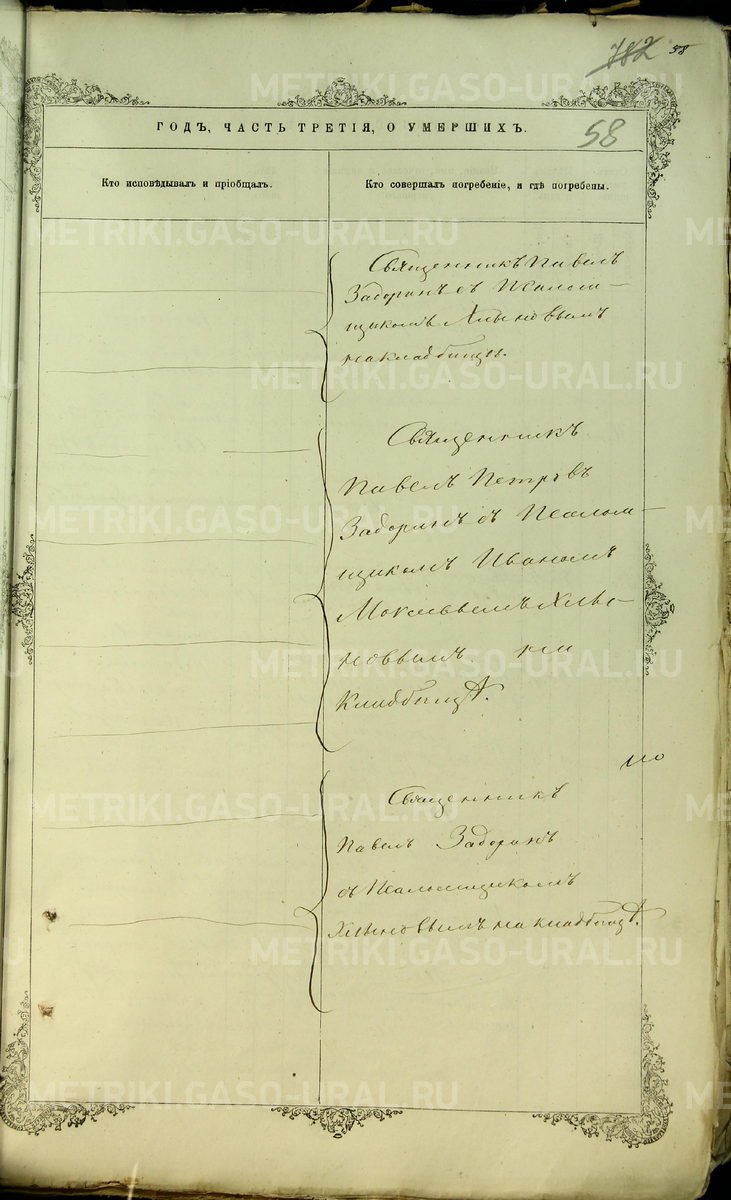 782 58
58
ГОДЪ, ЧАСТЬ ТРЕТІЯ, О УМЕРШИХЪ.
Кто исповѣдывалъ и пріобщалъ.
Кто совершалъ погребеніе, и гдѣ погребены.
Священникъ Павелъ
Задоринъ съ Псалом-
щикомъ Хлыновымъ
на кладбищѣ.
Священникъ
Павелъ Петровъ
Задоринъ съ Псалом-
щикомъ Иваномъ
Хлы-
новымъ на
кладбищѣ.
Священникъ
Павелъ Задоринъ
съ Псаломщикомъ
Хлыновымъ на кладбищѣ.
METRIKI.GASO-URAL.RU